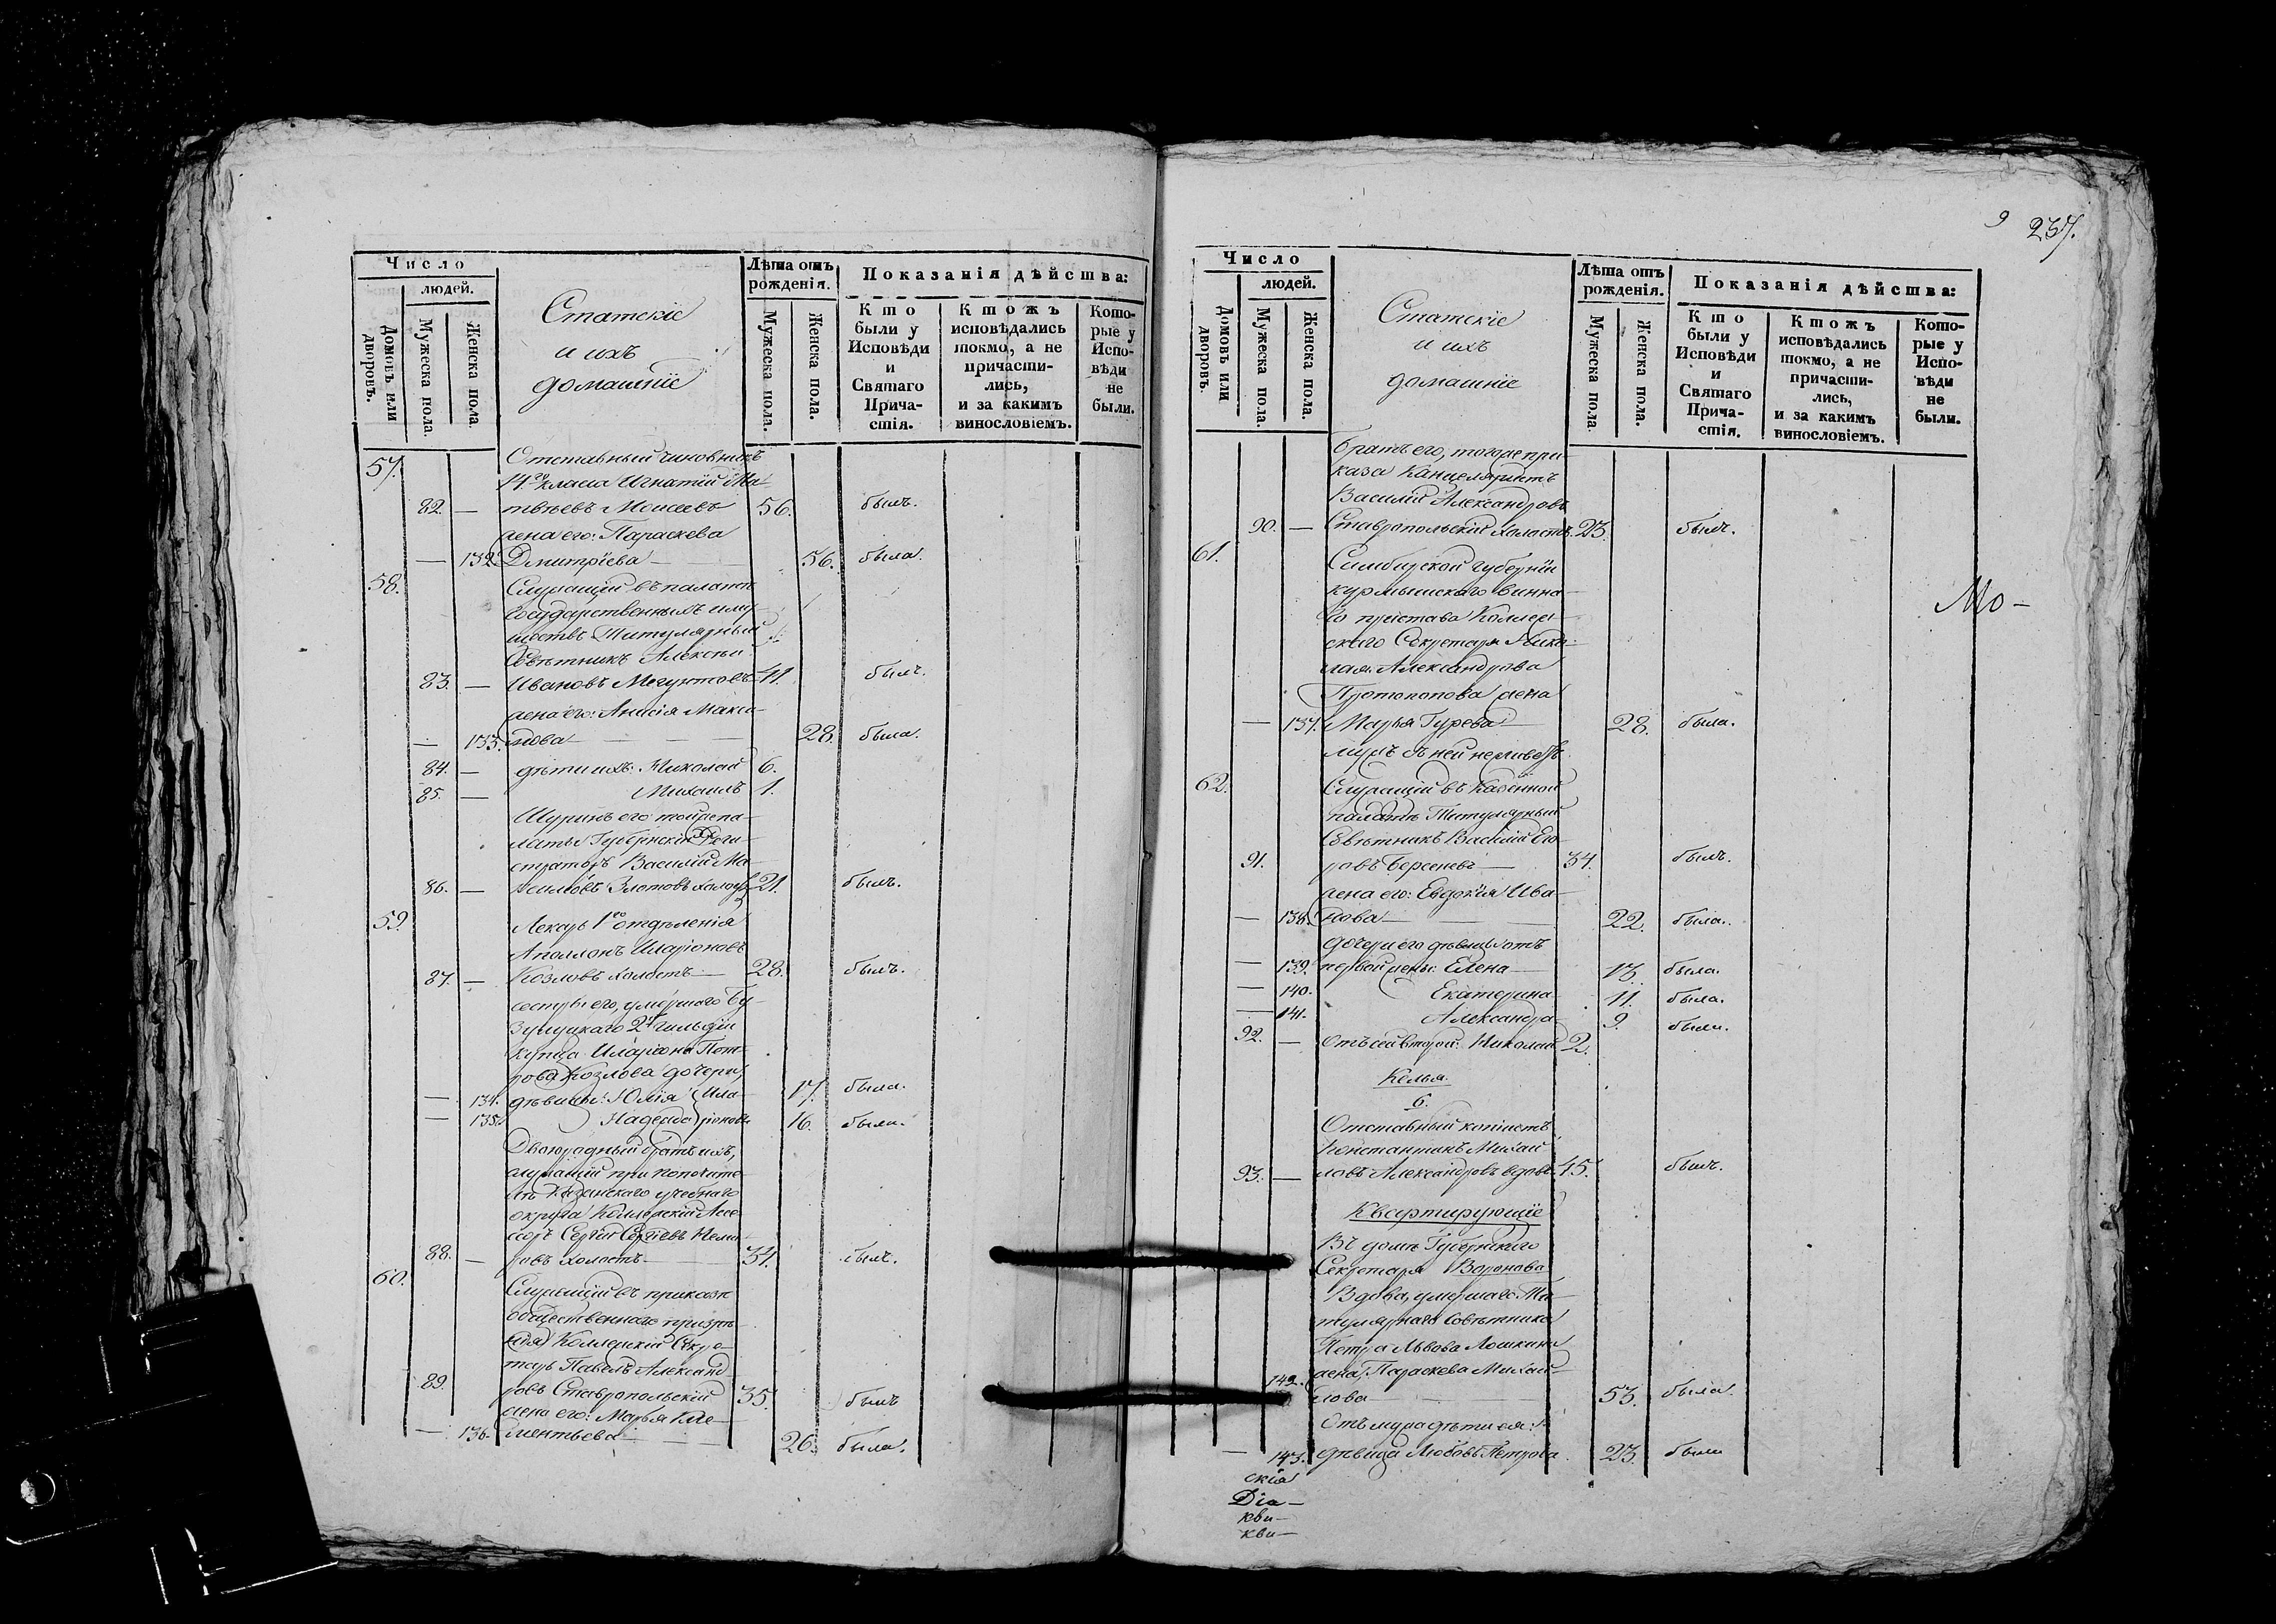 Число
людей.
Домовъ или дворовъ.
Мужеска пола.
Женска пола.
Статскіе
и ихъ
домашніе
Лѣта отъ рожденія.
Мужеска пола.
Женска пола.
Показанія дѣйства:
Кто были у Исповѣди и Святаго Причастія.
Ктожъ исповѣдались токмо, а не причастились, и за какимъ винословіемъ.
Которые у Исповѣди не были.
57. Отставный чиновникъ
14го класса Игнатій Ма-
82. — твѣевъ Моисеевъ 56. былъ.
жена его: Параскева
— 132. Дмитріева — 56. была.
58. Служащій въ палатѣ
государственныхъ иму-
ществъ Титулярный
Совѣтникъ Алексѣй
83. — Ивановъ 41. былъ.
жена его: Анисія Макси-
— 133. мова — 28. была.
84. — дѣти ихъ: Николай 6.
85. — Михаилъ 1.
Шуринъ его той же па-
латы Губернскій Реги-
стратъръ Василій Ма-
86. — ксимовъ Злотовъ холостъ 21. былъ.
59. Лекарь 1го отдѣленія
Аполлонъ Иларіоновъ
87. — Козловъ холостъ — 28. былъ.
сестры его, умершаго Бу-
зулуцкаго 2й гильдіи
купца Иларіона Пет-
рова Козлова дочери,
— 134. дѣвицы: Юлія Ила- 17. была.
— 135. Надежда ріоновы 16. была.
Двоюродный братъ ихъ,
служащій при попечите-
лѣ Казанскаго учебнаго
округа Коллежскій Ассе-
соръ Сергій Сергіевъ
88. — ровъ холостъ — 34. былъ.
60. Служащій въ приказѣ
общественнаго призрѣ-
нія Коллежскій Секре-
тарь Павелъ Александ-
89. ровъ Ставропольскій 35. былъ
жена его: Марья Кле-
— 136. ментьева — 26. была.
9 237.
Число
людей.
Домовъ или дворовъ.
Мужеска пола.
Женска пола.
Статскіе
и ихъ
домашніе
Лѣта отъ рожденія.
Мужеска пола.
Женска пола.
Показанія дѣйства:
Кто были у Исповѣди и Святаго Причастія.
Ктожъ исповѣдались токмо, а не причастились, и за какимъ винословіемъ.
Которые у Исповѣди не были.
Братъ его, тогоже при-
каза Канцеляристъ
Василій Александровъ
90. — Ставропольскій холостъ. 23. былъ.
61. Симбирской губерніи
курмышскаго винна-
го пристава Коллеж-
скаго Секретаря Нико-
лая Александрова
Протопопова жена
— 137. Марья Гурьева — 28. была.
мужъ съ ней не живетъ.
Мо-
62. Служащій въ Казенной
палатѣ Титулярный
Совѣтникъ Василій Его-
91. ровъ Берсеневъ — 34. былъ.
жена его: Евдокія Ива-
— 138. нова — 22. была.
дочери его дѣвицы отъ
— 139. первой жены: Елена — 13. была.
— 140. Екатерина 11. была.
— 141. Александра 9. была.
92. — Отъ сей второй: Николай 2.
Келья.
6.
Отставный копіистъ
Константинъ Михай-
93. — ловъ Александровъ вдовъ 45. былъ.
Квартирующіе
Въ домѣ Губернскаго
Секретаря Воронова
Вдова, умершаго Ти-
тулярнаго Совѣтника
Петра Львова Лошкина
жена, Параскева Михай-
142. лова — 53. была.
Отъ мужа дѣти ея:
— 143. дѣвица Любовь Петрова. 23. была
скія
Діа-
кви-
кви-